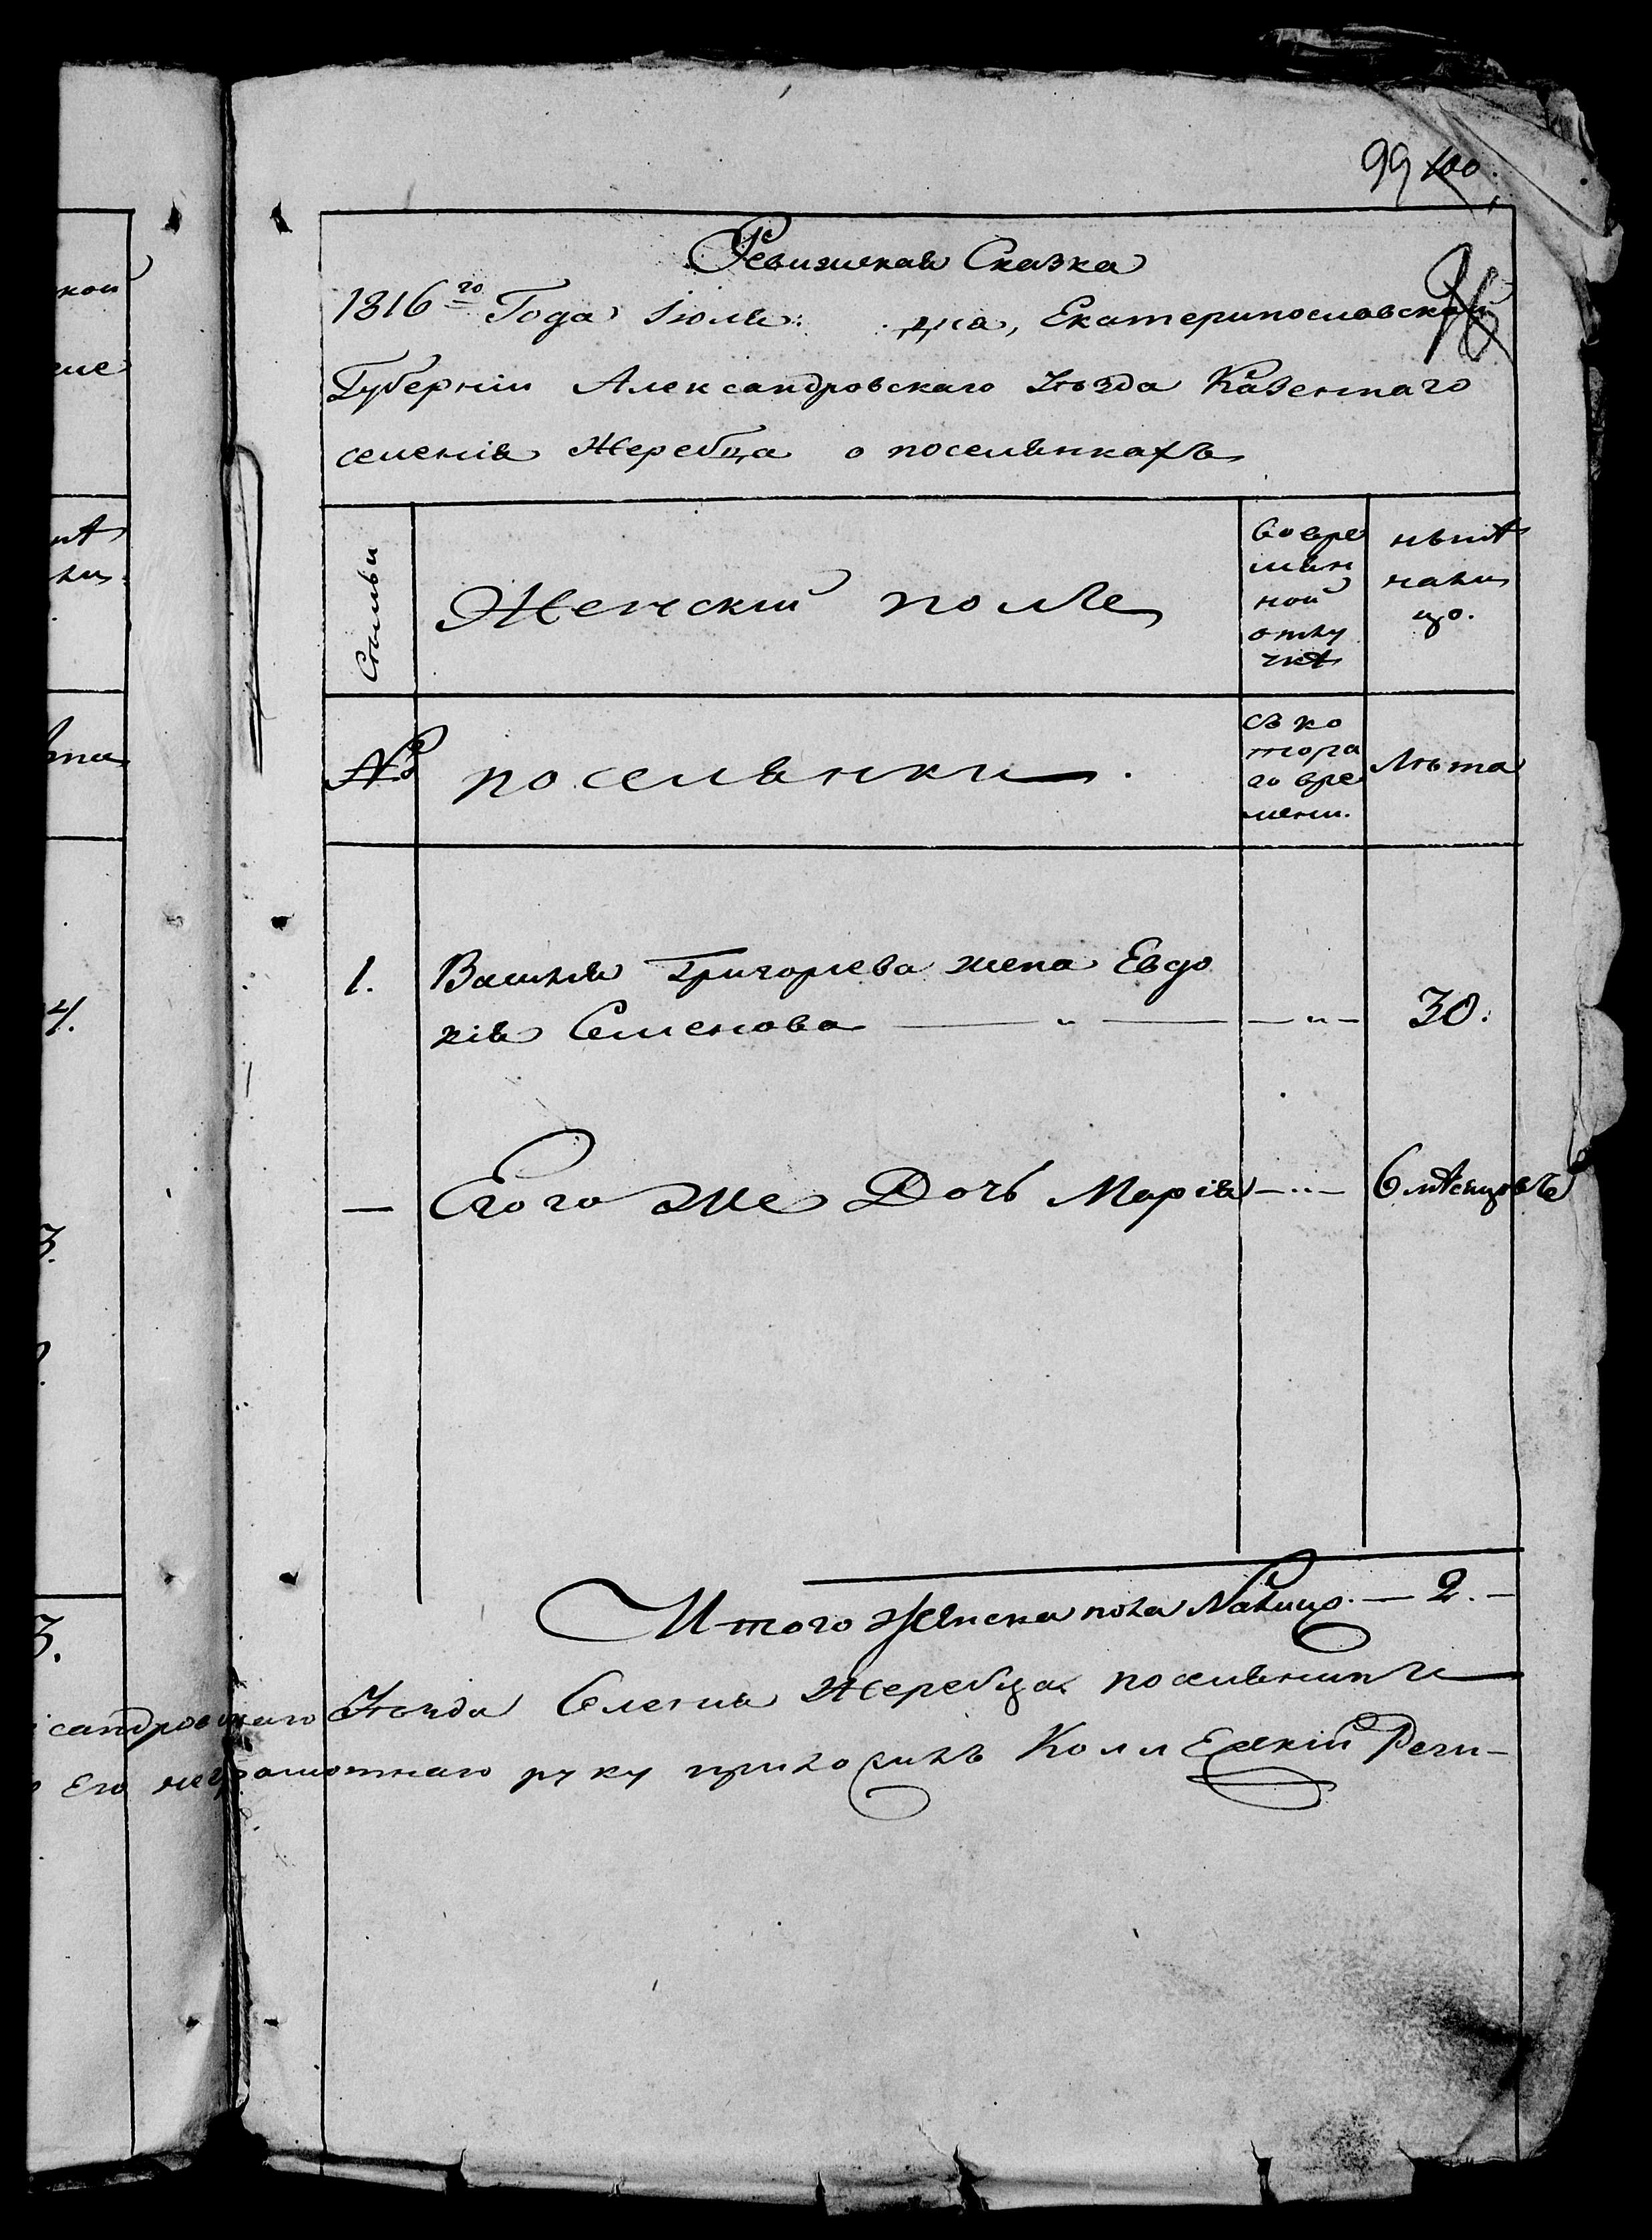 99 100.
Ревижская Сказка
1816го Года Iюля: дня, Екатеринославской
Губернiи Александровскаго Уѣзда Казеннаго
селенiя Жеребца о поселянкахъ
Семьи
Женскiй полъ
во вре
мян
ной
отлу
чкѣ
нынѣ
нали
цо.
№
поселянки.
съ ко
тора
го вре
мени.
Лѣта
1. Василiя Григорiева жена Евдо
кiя Семенова — " — — " — 30.
— Егого же Дочь Марiя — " — 6 мѣсяцовъ
Итого женска пола Налицо. — 2. —
сандровскаго Уѣзда Селенiя Жеребца поселянинъ
Его неграмотнаго руку приложилъ Колл Реги-
кой
нѣ
ли
ѣта
4.
3.
3.